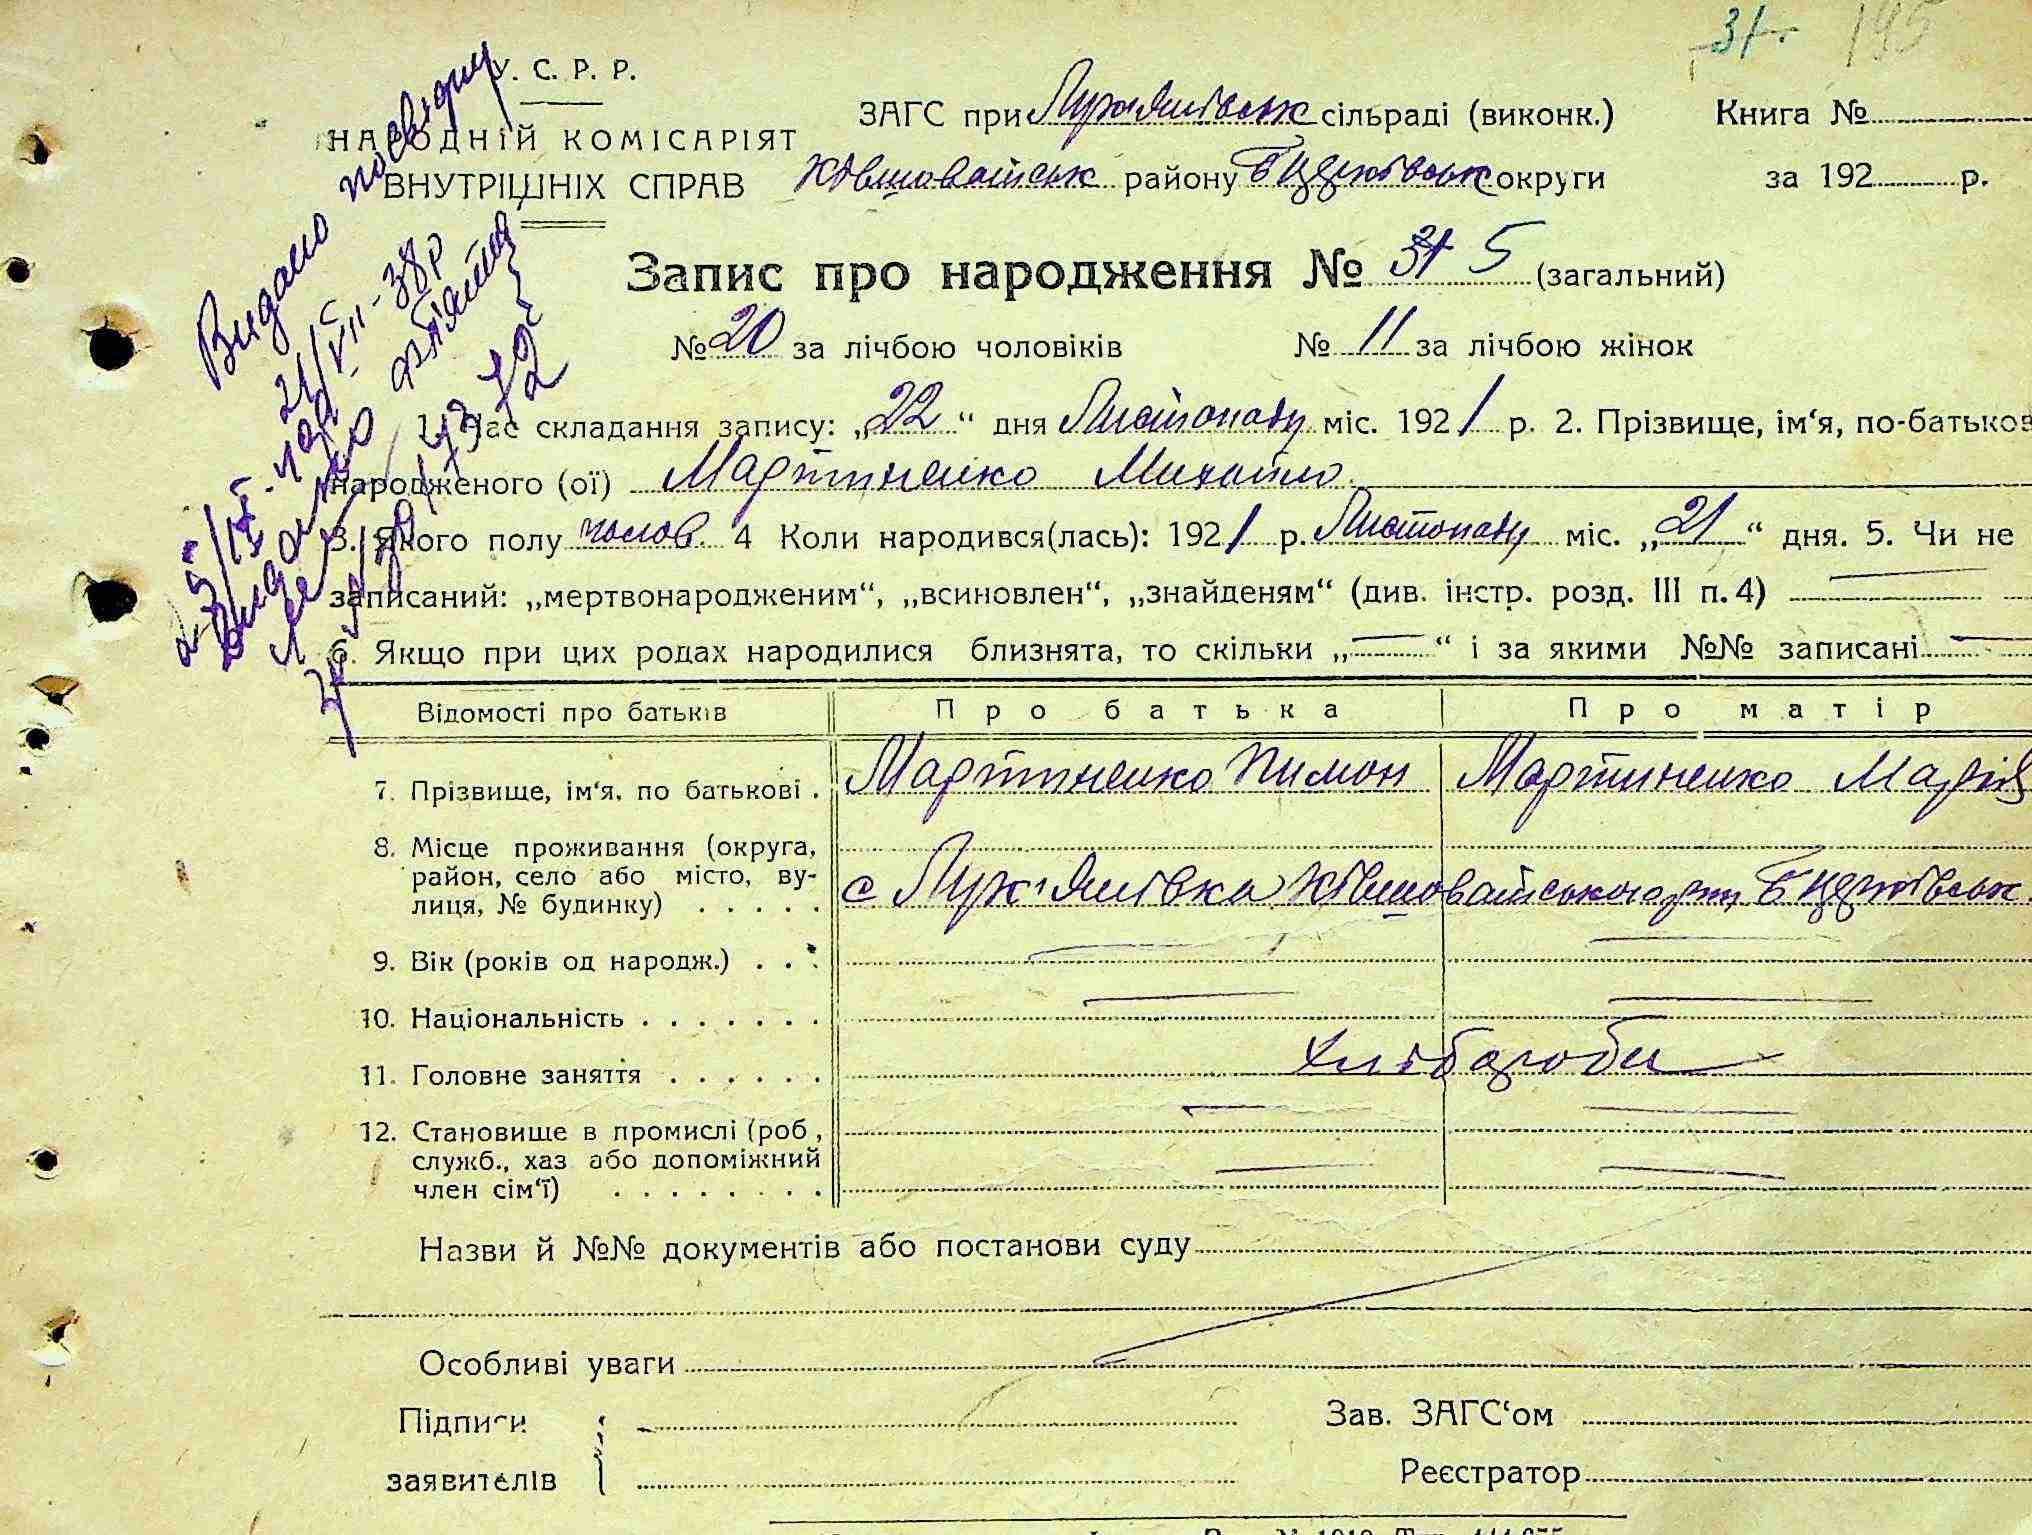 31 195
У. С. Р. Р.
НАРОДНІЙ КОМІСАРІЯТ
ВНУТРІШНІХ СПРАВ
ЗАГС при Лук'янівськ сільраді (виконк.) Книга №
Ківшоватськ району Б Церківськ округи за 192 р.
Запис про народження № 31 5 (загальний)
№ 20 за лічбою чоловіків № 11 за лічбою жінок
1. Час складання запису: „22“ дня Листопаду міс. 1921 р. 2. Прізвище, ім'я, по-батьков
народженого (ої) Мартиненко Михайло
3. Якого полу чолов. 4 Коли народився(лась): 1921 р. Листопаду міс. „21“ дня. 5. Чи не
записаний: „мертвонародженим“, „всиновлен“, „знайденям“ (див. інстр. розд. III п. 4) —
6. Якщо при цих родах народилися близнята, то скільки „—“ і за якими №№ записані —
Видано посвідку
21/VII-38р
Видано
Відомості про батьків Про батька Про матір
7. Прізвище, ім'я, по батькові . Мартиненко Пимон Мартиненко Марія
8. Місце проживання (округа,
район, село або місто, ву-
лиця, № будинку) . . . . . с Лук'янівка Ківшоватського рну Б Церківськ.
9. Вік (років од народж.) . . . — —
10. Національність . . . . . . . — —
11. Головне заняття . . . . . . Хлібороби
12. Становище в промислі (роб,
служб., хаз або допоміжний
член сім'ї) . . . . . . . . — —
Назви й №№ документів або постанови суду
Особливі уваги
Підписи Зав. ЗАГС'ом
заявителів Реєстратор